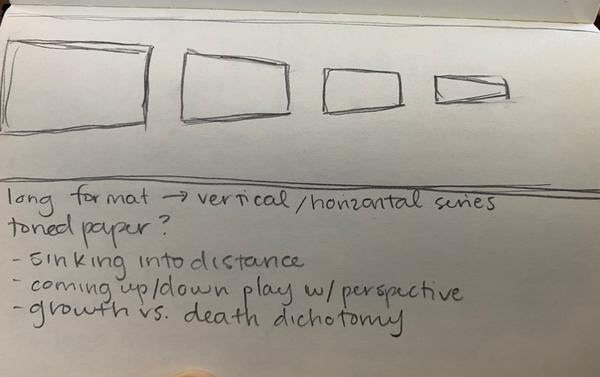 long format → vertical/horizontal series
toned paper?
- sinking into distance
- coming up/down play w/ perspective
- growth vs. death dichotomy